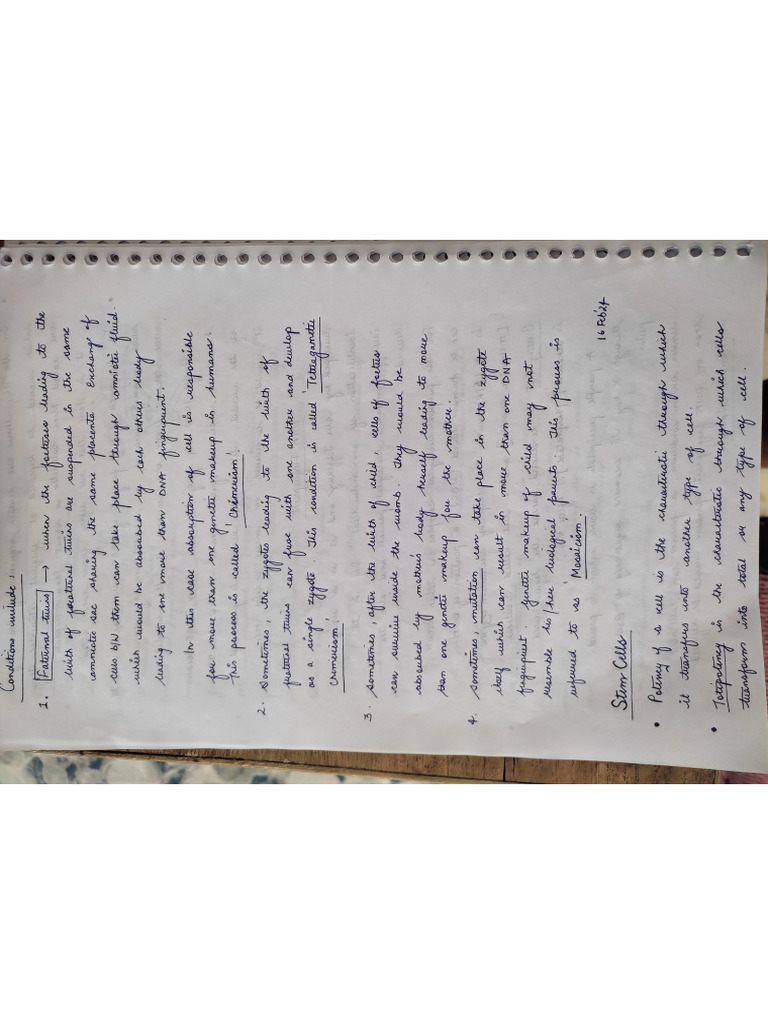 Conditions include :
1. Fraternal twins → when the foetuses leading to the
birth of fraternal twins are suspended in the same
amniotic sac sharing the same placenta. Exchange of
cells b/w them can take place through amniotic fluid.
which would be absorbed by each others body
leading to one more than DNA fingerprint.
In this case absorption of cell is responsible
for more than one genetic makeup in humans.
This process is called 'Chimerism'.
2. Sometimes, the zygote leading to the birth of
fraternal twins can fuse with one another and develop
as a single zygote This condition is called 'Tetragametic
Chimerism'.
3. Sometimes, after the birth of child, cells of foetus
can survive inside the womb. They would be
absorbed by mother's body herself leading to more
than one genetic makeup for the mother.
4. Sometimes, mutation can take place in the zygote
itself which can result in more than one DNA
fingerprint. Genetic makeup of child may not
resemble his/her biological parents. This process is
referred to as 'Mosaicism.
16 Feb'24
Stem Cells
• Potency of a cell is the characteristic through which
it transfers into another type of cell.
• Totipotency is the characteristic through which cells
transform into total or any type of cell.